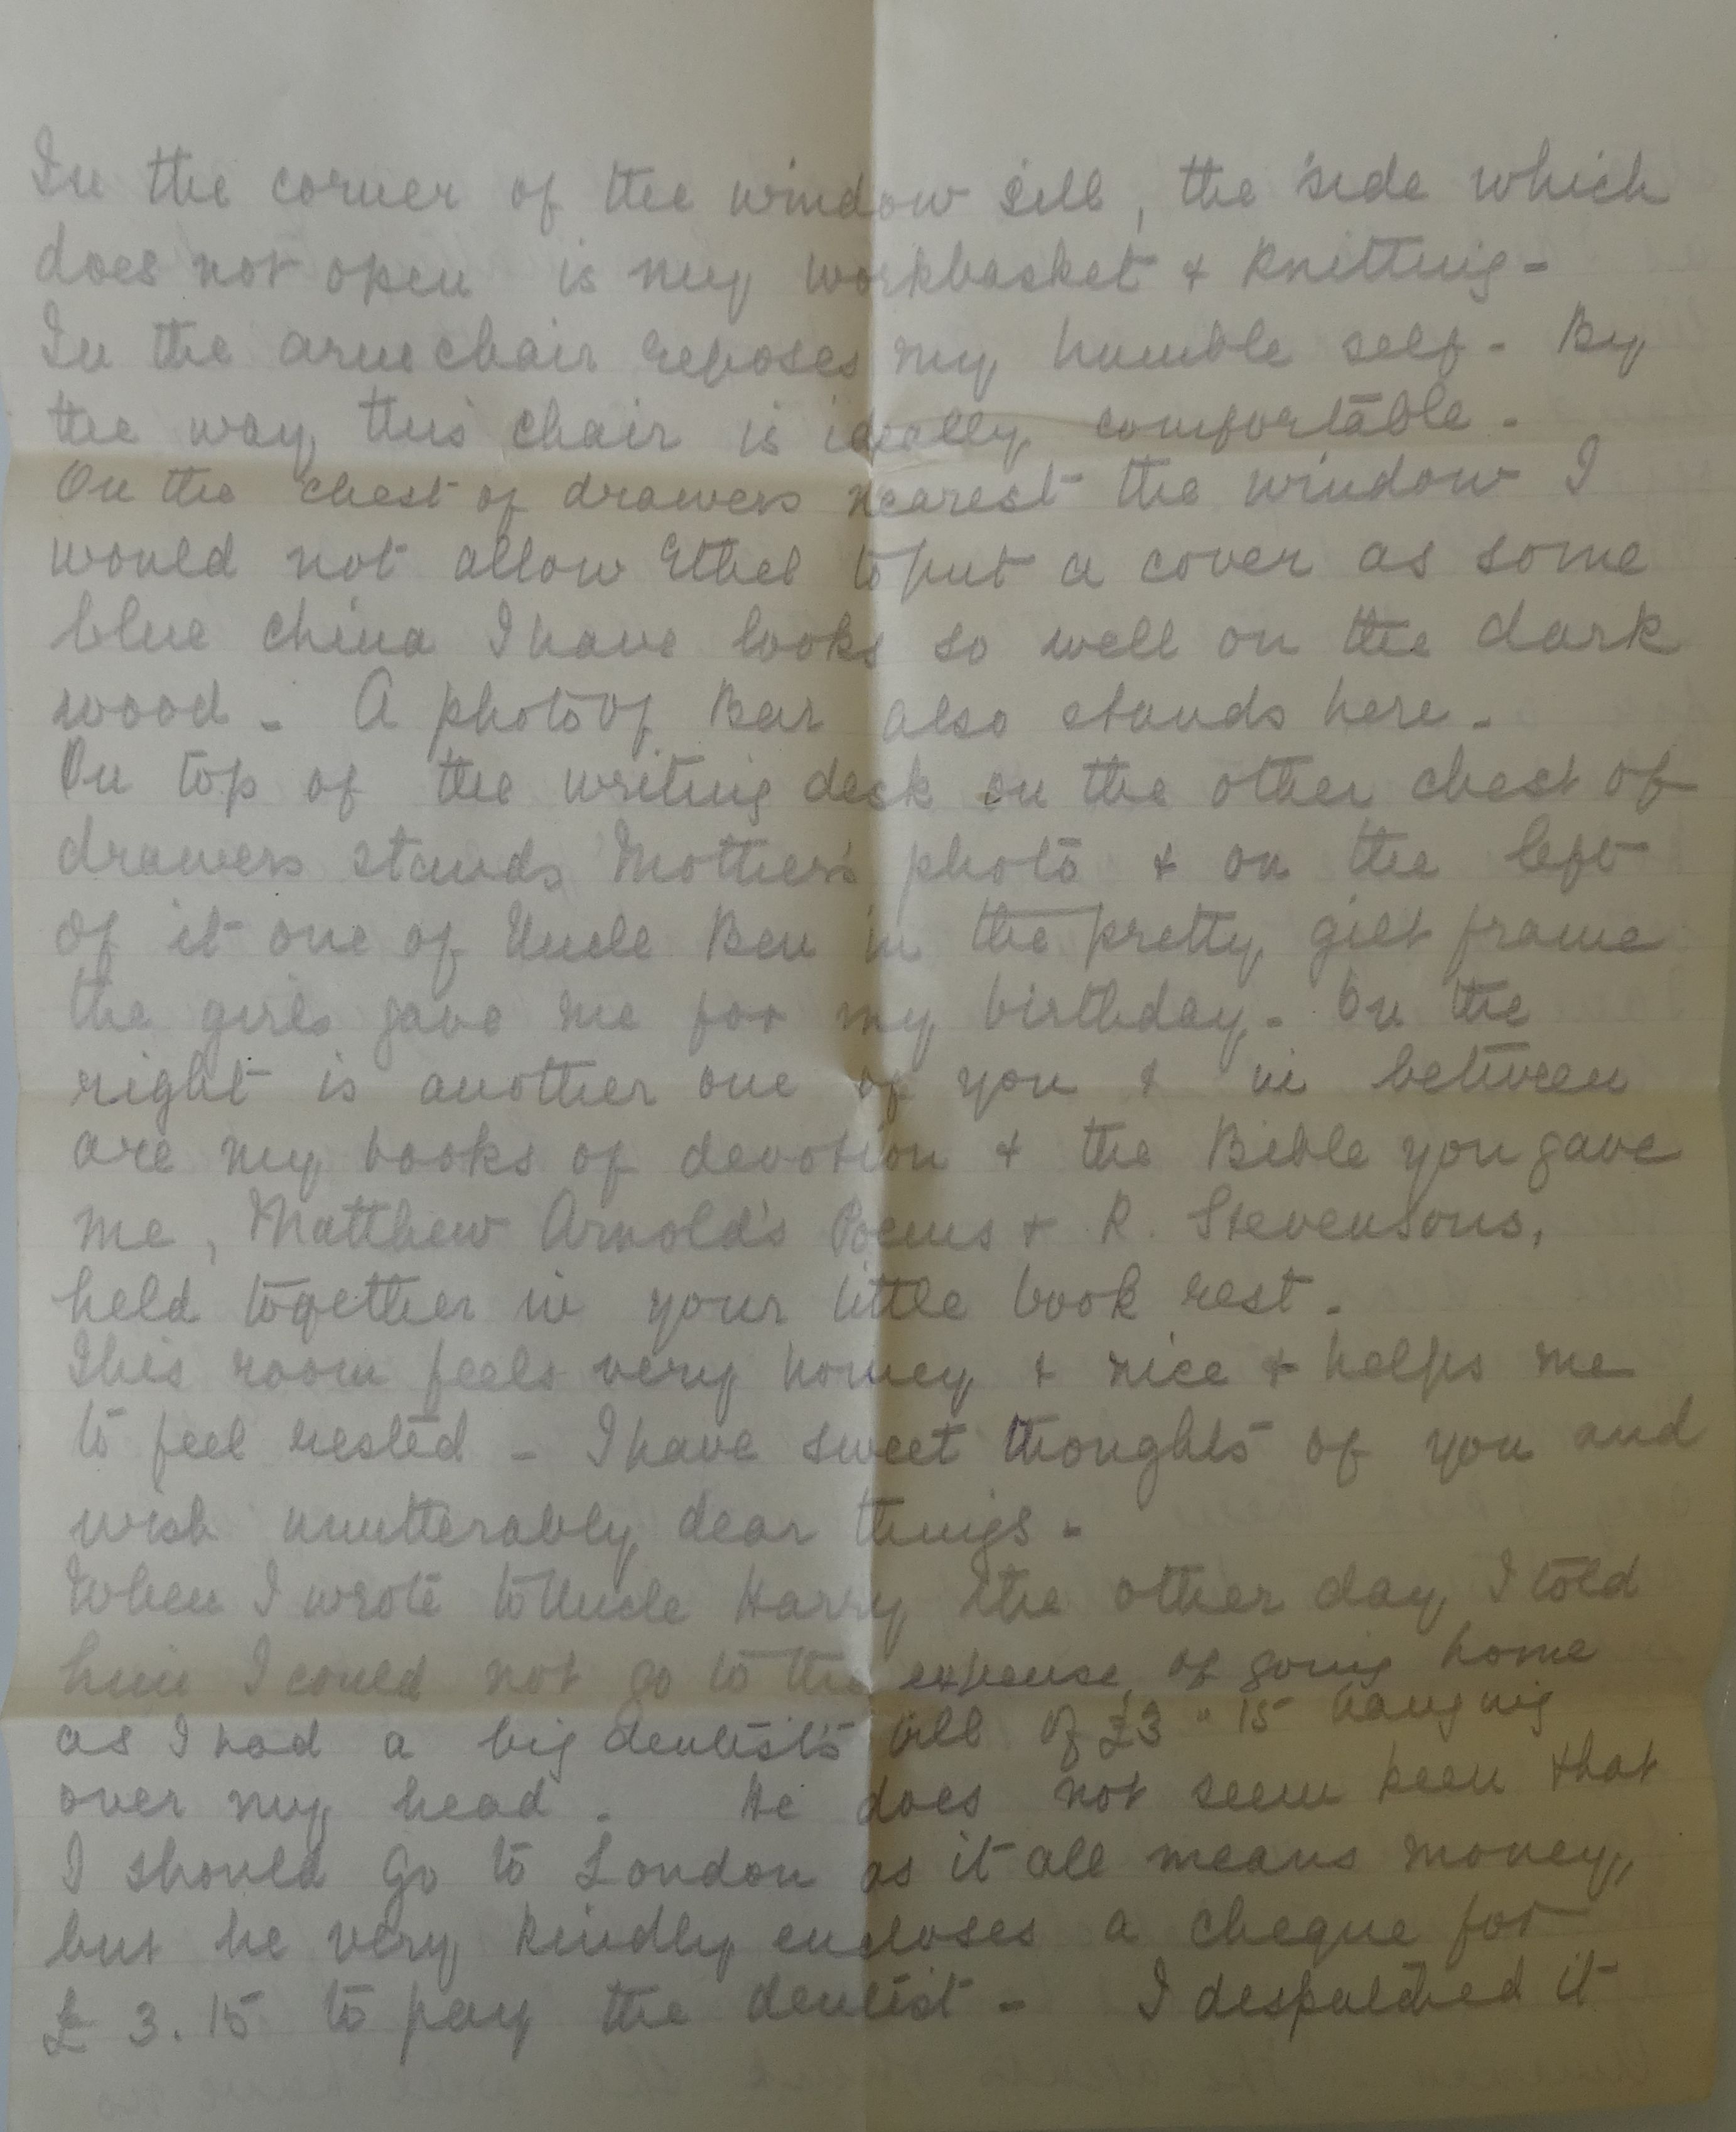 In the corner of the window sill, the side which
does not open is my workbasket & knitting -
In the armchair reposes my humble self - By
the way, this chair is ideally comfortable -
On the chest of drawers nearest the window I
would not allow Ethel to put a cover as some
blue china I have looks so well on the dark
wood - A photo of Bar also stands here -
On top of the writing desk on the other chest of
drawers stands Mother's photo & on the left
of it one of Uncle Ben in the pretty gilt frame
the girls gave me for my birthday - On the
right is another one of you & in between
are my books of devotion & the Bible you gave
me, Matthew Arnold's Poems & R. Stevensons,
held together in your little book rest -
This room feels very homey & nice & helps me
to feel rested - I have sweet thoughts of you and
wish unutterably dear things -
When I wrote to Uncle Harry the other day, I told
him I could not go to the expense of going home
as I had a big dentist's bill of £3 " 15 hanging
over my head - He does not seem keen that
I should go to London as it all means money,
but he very kindly encloses a cheque for
£ 3. 15 to pay the dentist - I despatched it